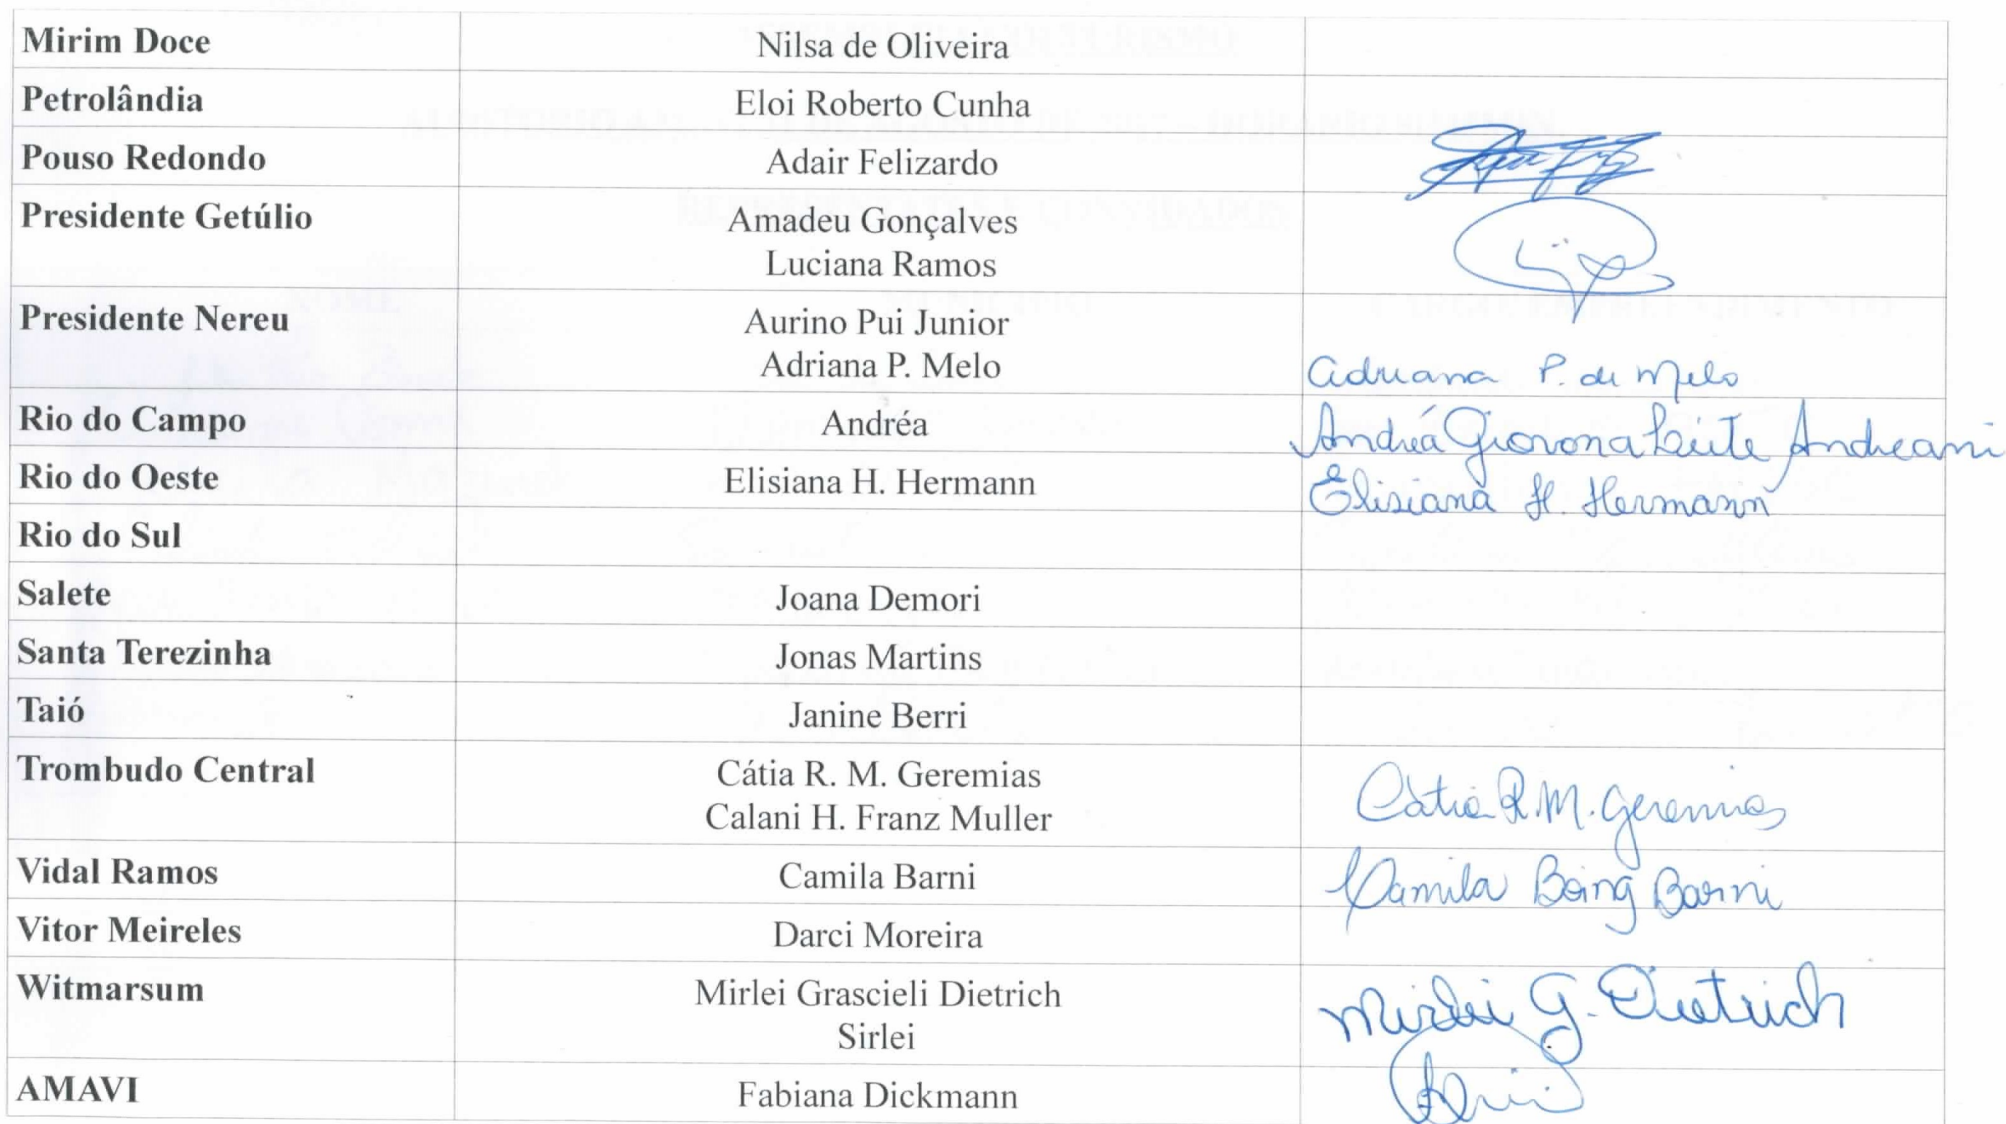 Mirim Doce Nilsa de Oliveira
Petrolândia Eloi Roberto Cunha
Pouso Redondo Adair Felizardo
Presidente Getúlio Amadeu Gonçalves
Luciana Ramos
Presidente Nereu Aurino Pui Junior
Adriana P. Melo Adriana P. de Melo
Rio do Campo Andréa Andréa Giovona Leite Andreani
Rio do Oeste Elisiana H. Hermann Elisiana H. Hermann
Rio do Sul
Salete Joana Demori
Santa Terezinha Jonas Martins
Taió Janine Berri
Trombudo Central Cátia R. M. Geremias Cátia R. M. Geremias
Calani H. Franz Muller
Vidal Ramos Camila Barni Camila Boing Barni
Vitor Meireles Darci Moreira
Witmarsum Mirlei Grascieli Dietrich Mirlei G. Dietrich
Sirlei
AMAVI Fabiana Dickmann